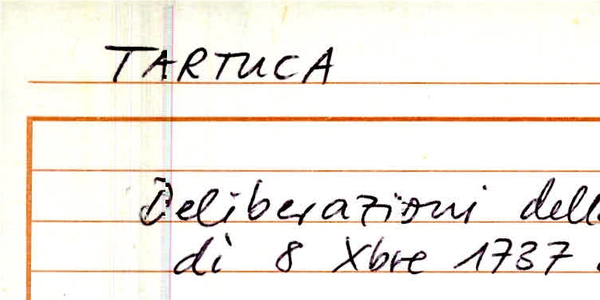 TARTUCA
Deliberazioni dell
dì 8 Xbre 1737